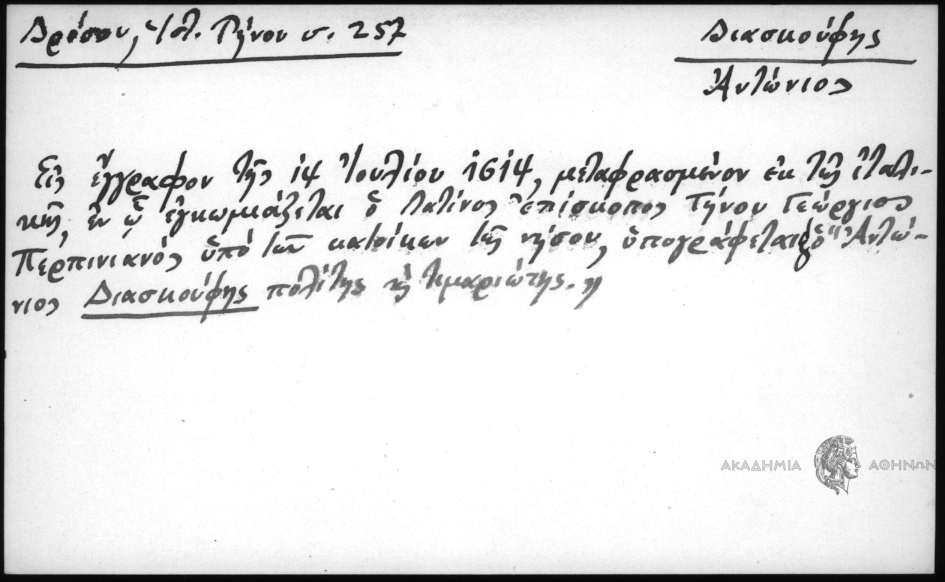 Δρόσου, Ἱστ. Τήνου σ. 257
Διασκούφης
Ἀντώνιος
Εἰς ἔγγραφον τῆς 14 Ἰουλίου 1614, μεταφρασμένον ἐκ τῆς ἰταλι-
κῆς, ἐν ᾧ ἐγκωμιάζεται ὁ Λατῖνος ἐπίσκοπος Τήνου Γεώργιος
Περπινιανός ὑπό τῶν κατοίκων τῆς νήσου, ὑπογράφεται ὁ "Ἀντώ-
νιος Διασκούφης πολίτης τιμαριώτης."
ΑΚΑΔΗΜΙΑ ΑΘΗΝΩΝ